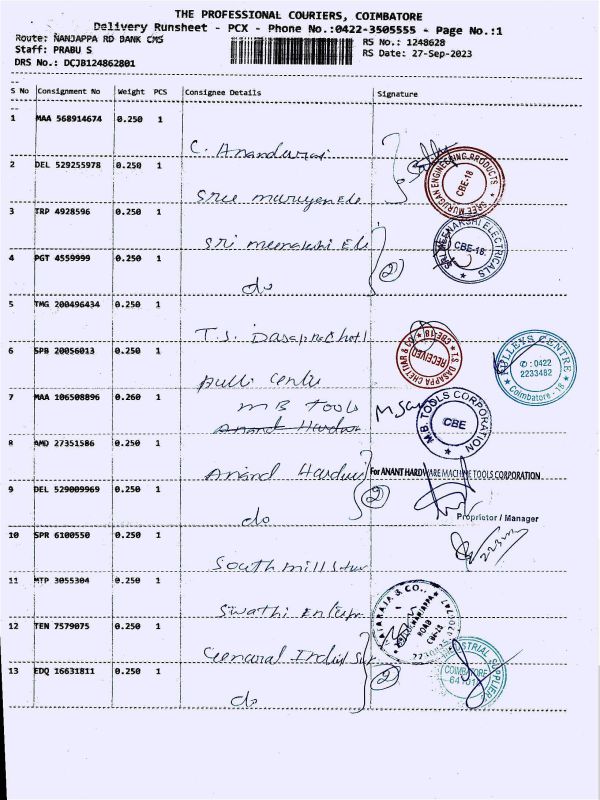 THE PROFESSIONAL COURIERS, COIMBATORE
Delivery Runsheet - PCX - Phone No.:0422-3505555 - Page No.:1
Route: NANJAPPA RD BANK CMS
RS No.: 1248628
Staff: PRABU S
RS Date: 27-Sep-2023
DRS No.: DCJB124862801
S No Consignment No Weight PCS Consignee Details Signature
1 MAA 568914674 0.250 1
C. Anandurai
2 DEL 529255978 0.250 1
SREE MURUGAN ENGINEERING PRODUCTS CBE-18
Sree murugan Ele
3 TRP 4928596 0.250 1
Sri meenakshi Ele
SRI MEENAKSHI ELECTRICALS CBE-18.
4 PGT 4559999 0.250 1
do
(2)
5 TMG 200496434 0.250 1
T.S. Dasappa Chetti
T.S. DASAPPA CHETTIAR & CO. CBE-18 RECEIVED
6 SPB 20056013 0.250 1
Pulli Centre
PULLENS CENTRE ✆: 0422 2233482 Coimbatore - 18
7 MAA 106508896 0.260 1
M B Tools
Anand Hardwr
M.B. TOOLS CORPORATION CBE
8 AMD 27351586 0.250 1
Anand Hardwr
For ANANT HARDWARE MACHINE TOOLS CORPORATION
9 DEL 529009969 0.250 1
do
(2)
Proprietor / Manager
10 SPR 6100550 0.250 1
South mill Stor
11 MTP 3055304 0.250 1
Swathi Enterpr
12 TEN 7579075 0.250 1
General Indust Sup
13 EDQ 16631811 0.250 1
do
(2)
INDUSTRIAL SUPPLIER COIMBATORE